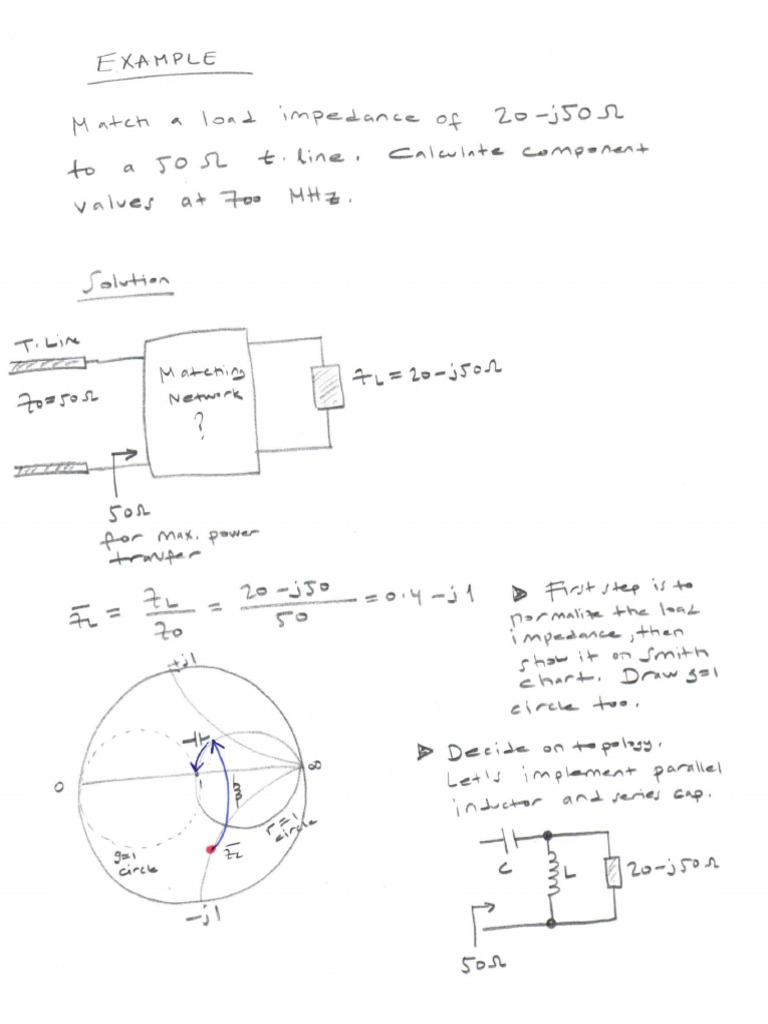 EXAMPLE
Match a load impedance of 20-j50Ω
to a 50Ω t.line. Calculate component
values at 700 MHz.
Solution
T.Line
Z0=50Ω
Matching
Network
?
ZL=20-j50Ω
50Ω
for max. power
transfer
z̄L = ZL/Z0 = 20-j50/50 = 0.4-j1
▷ First step is to
normalize the load
impedance, then
show it on Smith
chart. Draw g=1
circle too.
+j1
0
1
∞
g=1
circle
r=1
circle
z̄L
-j1
▷ Decide on topology.
Let's implement parallel
inductor and series cap.
C
L
20-j50Ω
50Ω